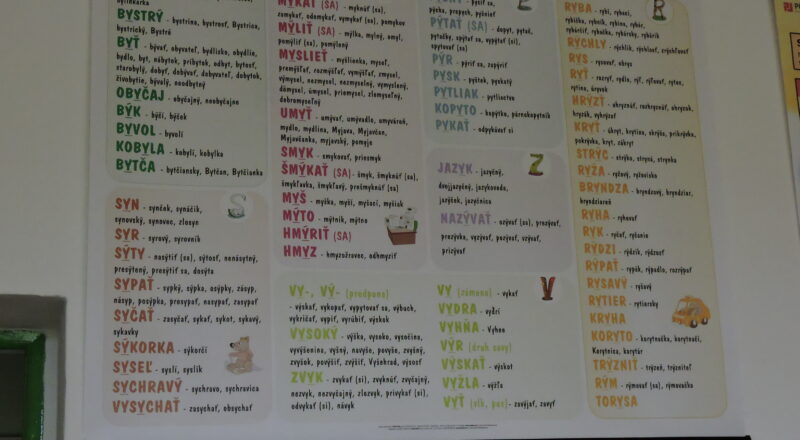 BYSTRÝ - bystrina, bystrosť, Bystrica,
bystrický, Bystré
BYŤ - bývať, obyvateľ, bydlisko, obydlie,
bydlo, byt, nábytok, príbytok, odbyt, bytosť,
starobylý, dobyť, dobývať, dobyvateľ, dobytok,
živobytie, bývalý, neodbytný
OBYČAJ - obyčajný, neobyčajne
BÝK - býčí, býček
BYVOL - byvolí
KOBYLA - kobylí, kobylka
BYTČA - bytčiansky, Bytčan, Bytčianka
SYN - synček, synáčik,
synovský, synovec, zlosyn
SYR - syrový, syrovník
SÝTY - nasýtiť (sa), sýtosť, nenásytný,
presýtený, presýtiť sa, dosýta
SYPAŤ - sypký, sýpka, osýpky, zásyp,
násyp, posýpka, prosypať, nasypať, zasypať
SYČAŤ - zasyčať, sykať, sykot, sykavý,
sykavky
SÝKORKA - sýkorčí
SYSEĽ - syslí, syslík
SYCHRAVÝ - sychravo, sychravica
VYSYCHAŤ - zasychať, obsychať
S
MYKAŤ (SA) - myknúť (sa),
zamykať, odomykať, vymykať (sa), pomykov
MÝLIŤ (SA) - mýlka, mylný, omyl,
pomýliť (sa), pomýlený
MYSLIEŤ - myšlienka, myseľ,
premýšľať, rozmýšľať, vymýšľať, zmysel,
výmysel, nezmysel, nezmyselný, vymyslený,
dômysel, úmysel, priemysel, zlomyseľný,
dobromyseľný
UMYŤ - umývať, umývadlo, umyváreň,
mydlo, mydlina, Myjava, Myjavčan,
Myjavčanka, myjavský, pomyje
SMYK - šmykovať, priesmyk
ŠMÝKAŤ (SA) - šmyk, šmyknúť (sa),
šmykľavka, šmykľavý, prešmyknúť (sa)
MYŠ - myška, myší, myšací, myšiak
MÝTO - mýtnik, mýtne
HMÝRIŤ (SA)
HMYZ - hmyzožravec, odhmyziť
pýcha, prepych, pyšnieť
PÝTAŤ (SA) - dopyt, pytač,
pytačky, spýtať sa, vypýtať (si),
spytovať sa)
PÝR - pýriť sa, zapýriť
PYSK - pyštek, pyskatý
PYTLIAK - pytliactvo
KOPYTO - kopýtko, párnokopytník
PYKAŤ - odpykávať si
JAZYK - jazyčný,
dvojjazyčný, jazykoveda,
jazýček, jazyčnica
NAZÝVAŤ - ozývať (sa), prezývať,
prezývka, vyzývať, pozývať, vzývať,
prizývať
Z
VY-, VÝ- (predpona)
- výskať, vykopať, vypytovať sa, výbuch,
vykričať, vypiť, vyrúbiť, výskok
VYSOKÝ - výška, vysoko, vysočina,
vyvýšenina, vyšný, navyše, povýše, zvýšný,
zvyšok, povýšiť, zvýšiť, Vyšehrad, výsosť
ZVYK - zvykať (si), zvyknúť, zvyčajný,
nezvyk, nezvyčajný, zlozvyk, privykať (si),
odvykať (si), návyk
VY (zámeno) - vykať
VYDRA - vydrí
VYHŇA - Vyhne
VÝR (druh sovy)
VÝSKAŤ - výskot
VYŽLA - výžľa
VYŤ (vlk, pes) - zavýjať, zavyť
V
RYBA - rybí, rybací,
rybička, rybník, rybina, rybár,
rybáriť, rybačka, rybársky, rybárik
RÝCHLY - rýchlik, rýchlosť, zrýchľovať
RYS - rysovať, obrys
RYŤ - rozryť, rydlo, rýľ, rýľovať, rytec,
rytina, úryvok
HRÝZŤ - uhryznúť, rozhryznúť, ohryzok,
hryzák, vyhrýzať
KRYŤ - úkryt, krytina, skrýša, prikrývka,
pokrývka, kryt, zákryt
STRÝC - strýko, stryná, strynka
RYŽA - ryžový, ryžovisko
BRYNDZA - bryndzový, bryndziar,
bryndziareň
RYHA - ryhovať
RYK - ryčať, ryčanie
RÝDZI - rýdzik, rýdzosť
RÝPAŤ - rypák, rýpadlo, rozrýpať
RYSAVÝ - ryšavý
RYTIER - rytiersky
KRYHA
KORYTO - korytnačka, korytnačí,
Korytnica, korytár
TRÝZNIŤ - trýzeň, trýzniteľ
RÝM - rýmovať (sa), rýmovačka
TORYSA
R